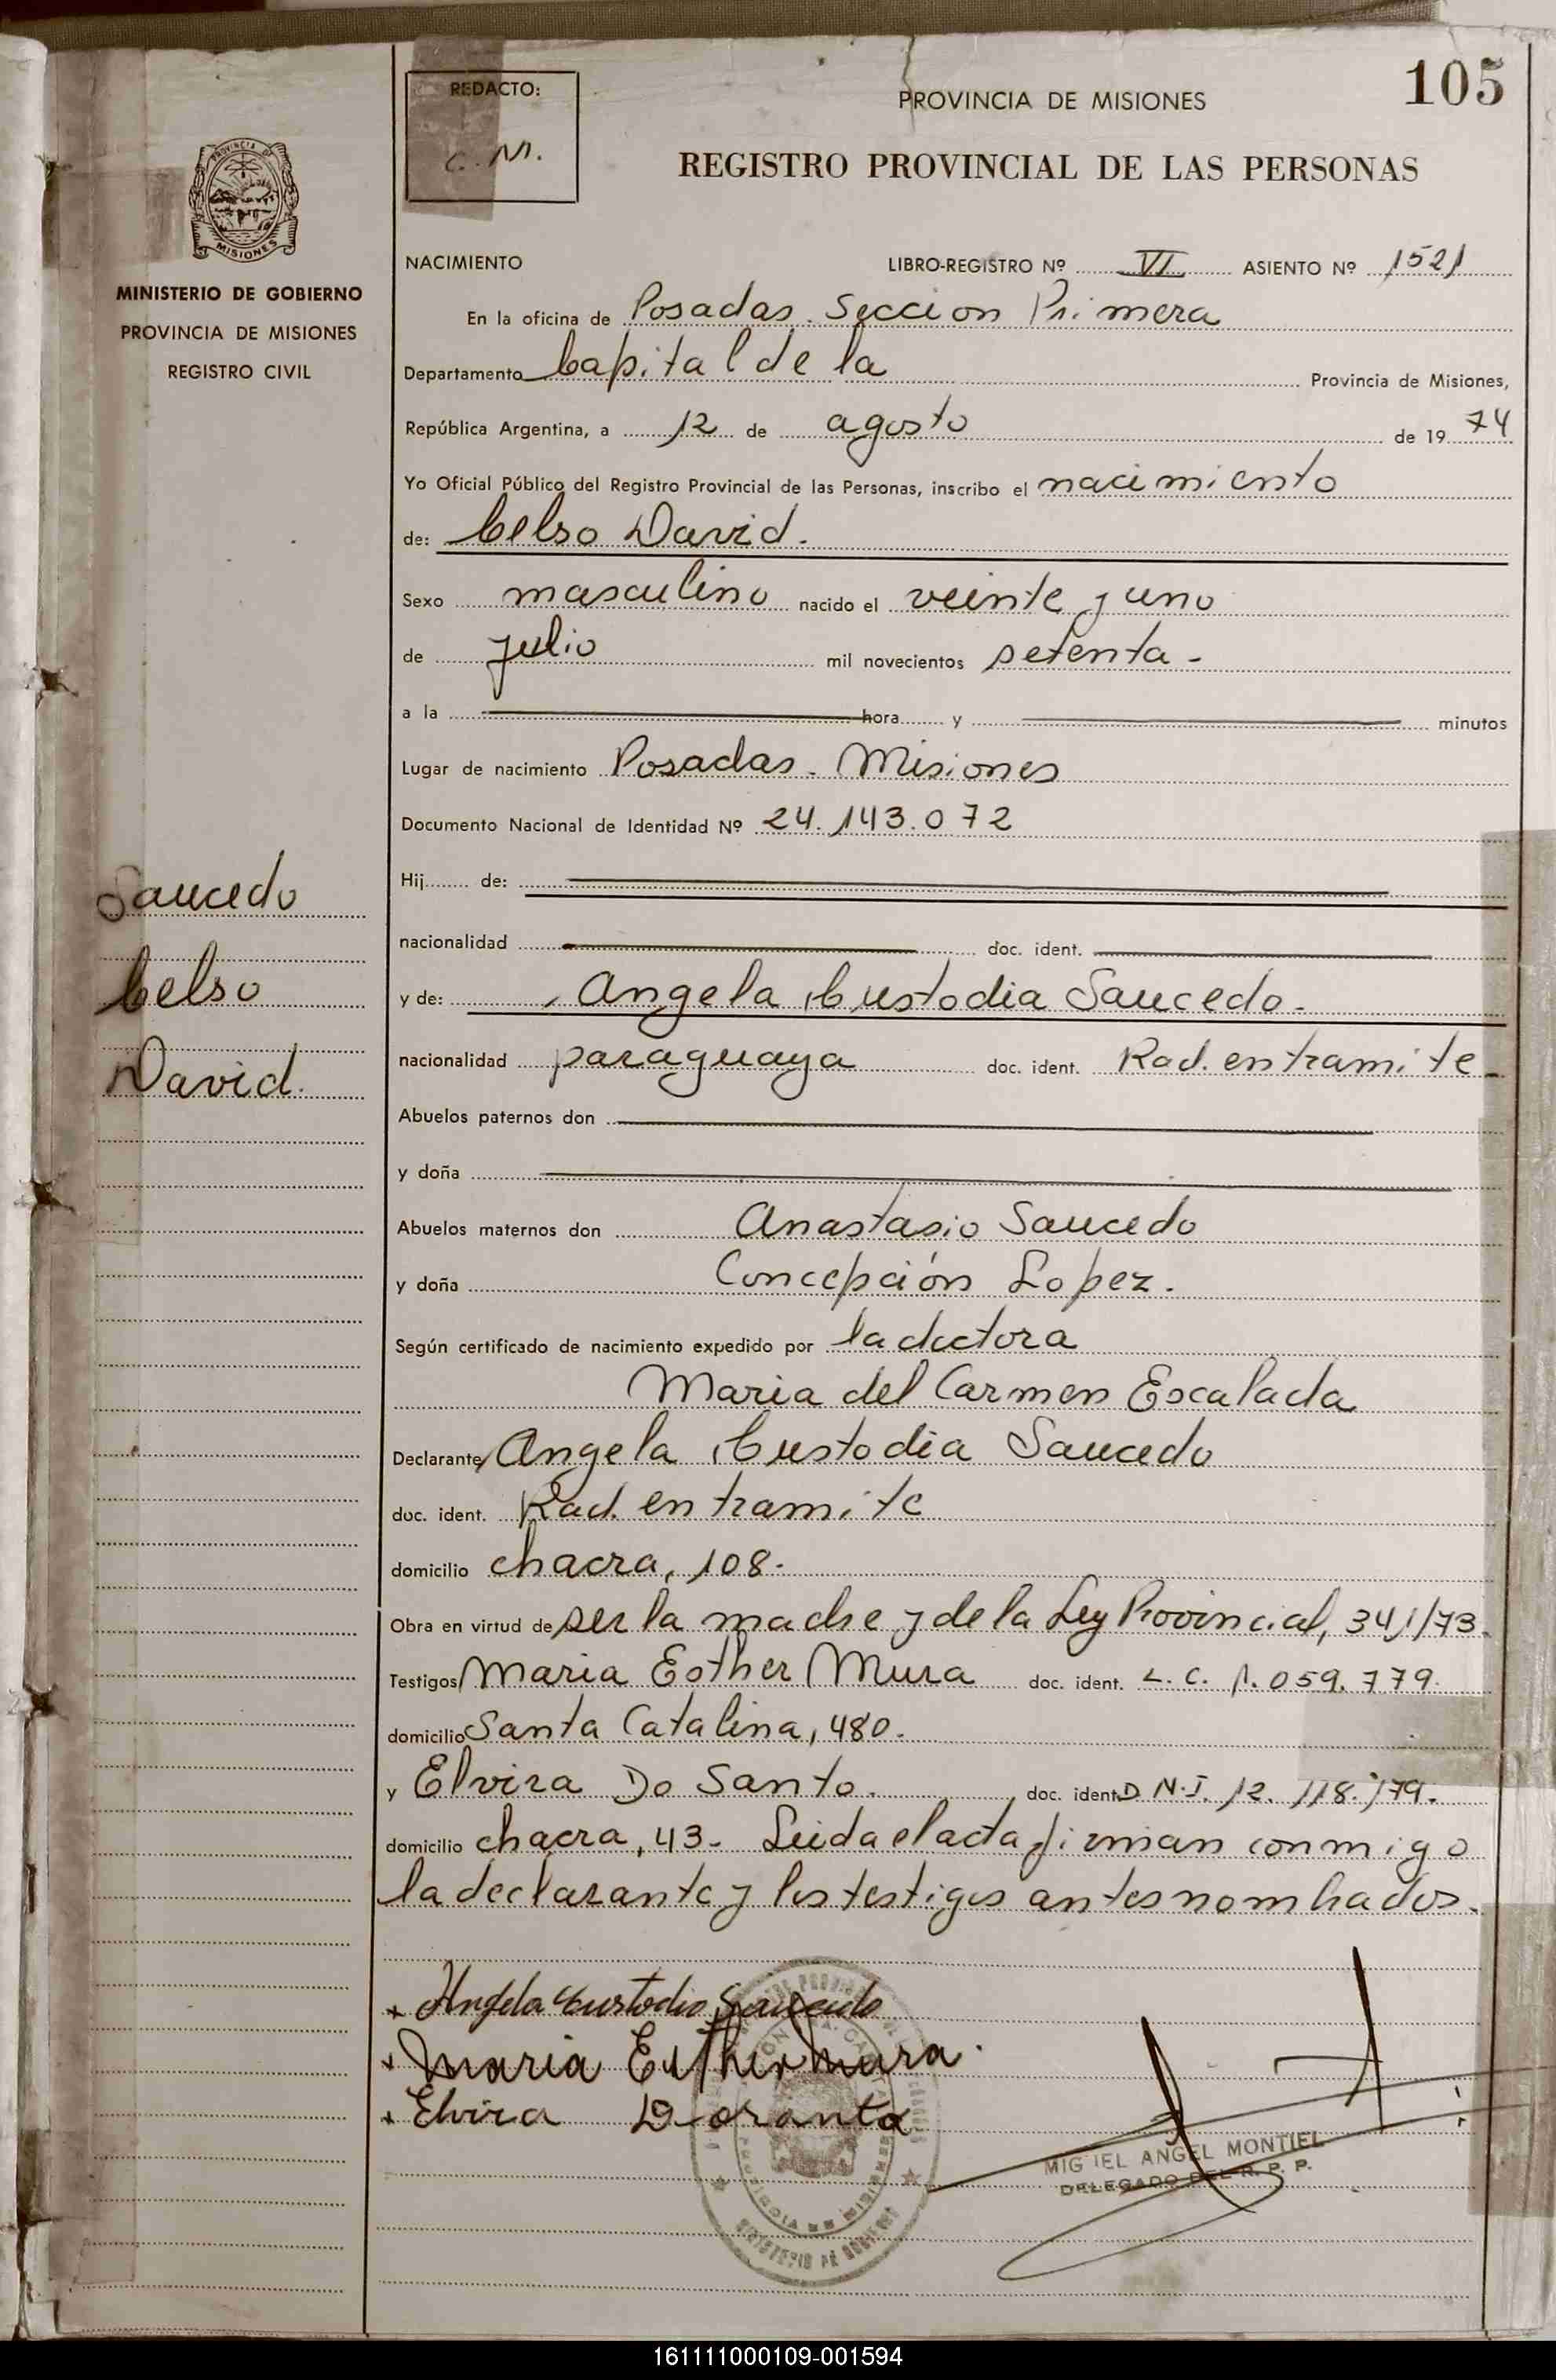 105
REDACTO:
C. M.
PROVINCIA DE MISIONES
REGISTRO PROVINCIAL DE LAS PERSONAS
PROVINCIA DE
MISIONES
MINISTERIO DE GOBIERNO
PROVINCIA DE MISIONES
REGISTRO CIVIL
NACIMIENTO LIBRO-REGISTRO Nº VI ASIENTO Nº 1521
En la oficina de Posadas. Seccion Primera
Departamento Capital de la Provincia de Misiones,
República Argentina, a 12 de agosto de 19 74
Yo Oficial Público del Registro Provincial de las Personas, inscribo el nacimiento
de: Celso David.
Sexo masculino nacido el veinte y uno
de julio mil novecientos setenta -
a la hora y minutos
Lugar de nacimiento Posadas. Misiones
Documento Nacional de Identidad Nº 24.143.072
Hij de:
nacionalidad doc. ident.
Saucedo
Celso
David.
y de: Angela Custodia Saucedo.
nacionalidad paraguaya doc. ident. Rad. en tramite
Abuelos paternos don
y doña
Abuelos maternos don Anastasio Saucedo
y doña Concepción Lopez.
Según certificado de nacimiento expedido por la doctora
Maria del Carmen Escalada
Declarante Angela Custodia Saucedo
doc. ident. Rad. en tramite
domicilio chacra, 108.
Obra en virtud de ser la madre y de la Ley Provincial, 341/73.
Testigos Maria Esther Mura doc. ident. L. C. 1.059.779.
domicilio Santa Catalina, 480.
y Elvira Do Santo. doc. ident D.N.I. 12.118.179.
domicilio chacra, 43. Leida el acta firman conmigo
la declarante y los testigos antes nombrados.
Angela Custodia Saucedo
Maria Esther Mura.
Elvira
MIGUEL ANGEL MONTIEL
DELEGADO DEL R. P. P.
PROVINCIA DE MISIONES
MINISTERIO DE GOBIERNO
161111000109-001594